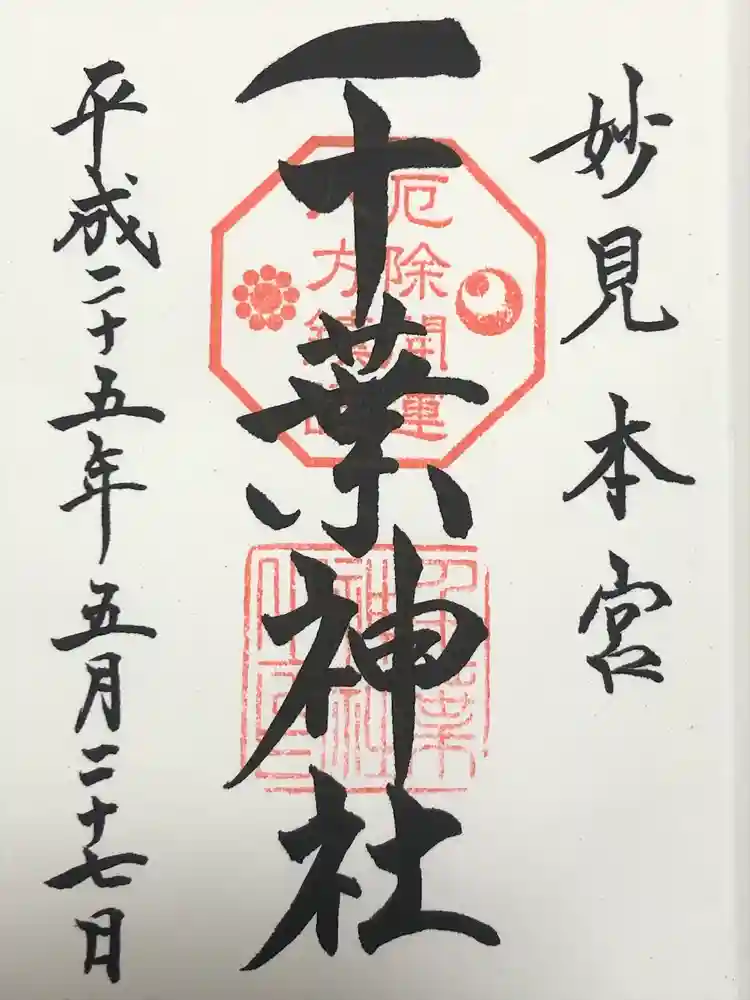 妙見本宮
千葉神社
厄除開運
八方
千葉
神社
平成二十五年五月二十七日